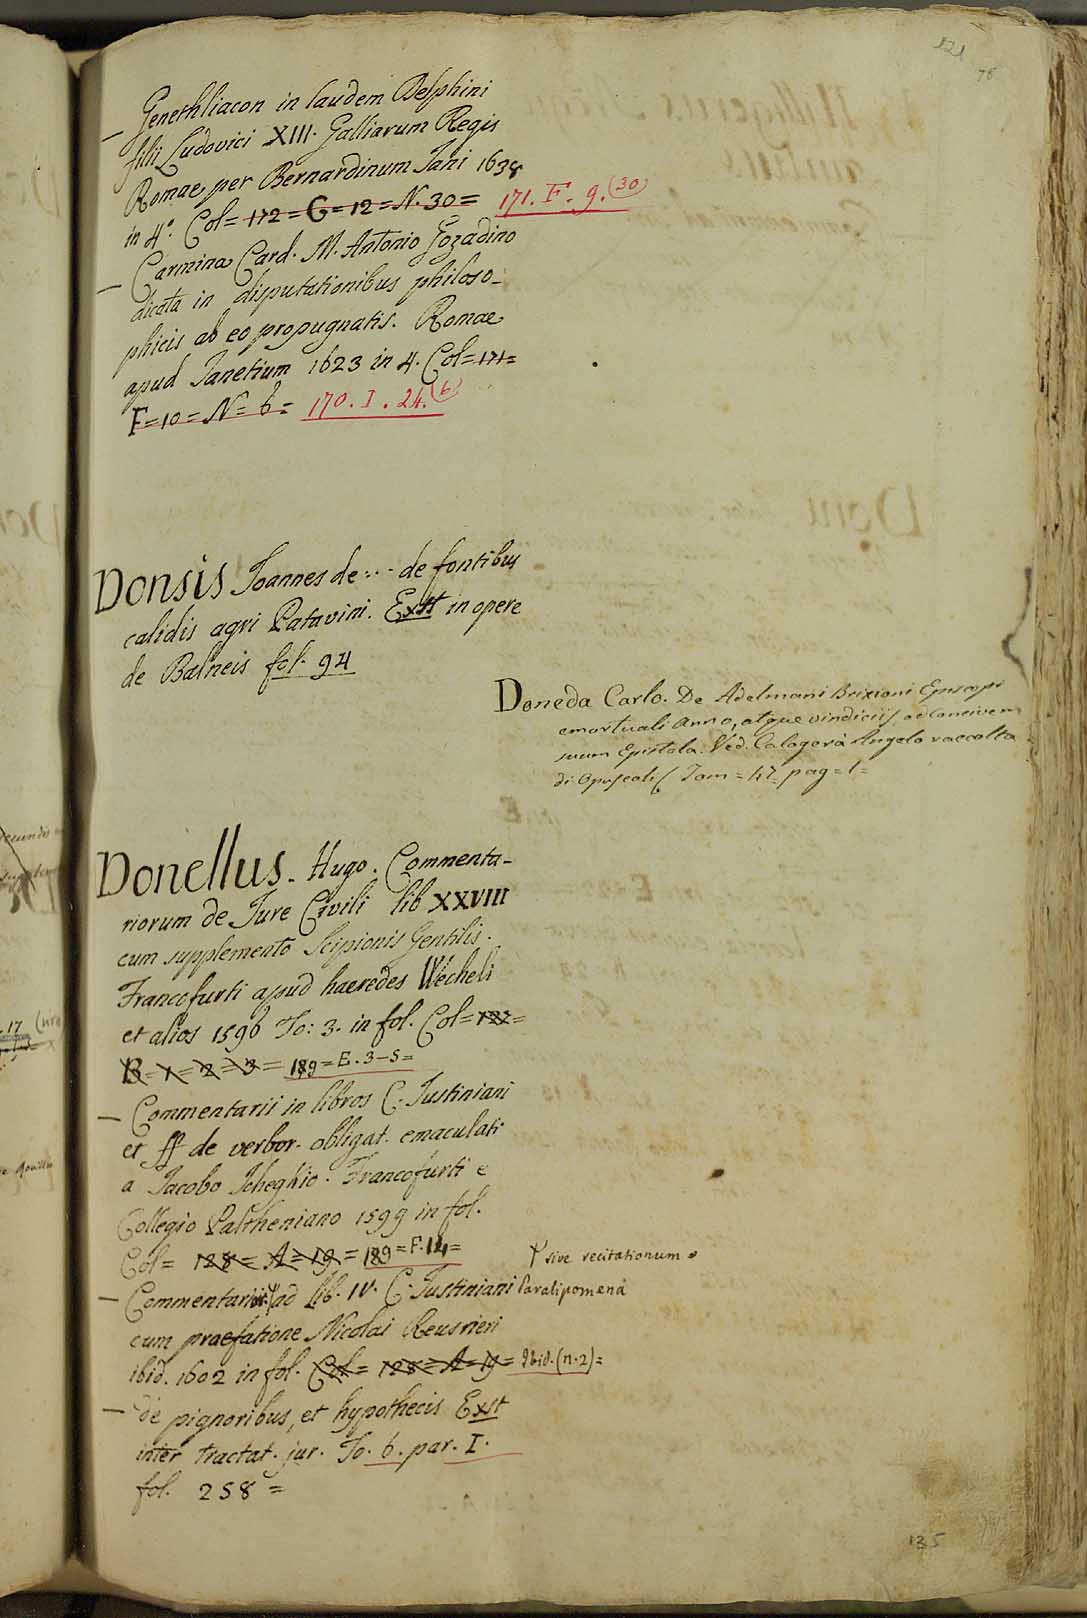 121
78
— Genethliacon in laudem Delphini
filii Ludovici XIII. Galliarum Regis
Romae per Bernardinum Tani 1638
in 4°. Col= 172 = G = 12 = N. 30 = 171. F. 9. (30)
— Carmina Card. M. Antonio Gozadino
dicata in disputationibus philoso-
phicis ab eo propugnatis. Romae
apud Zanetium 1623 in 4. Col= 171=
F=10=N=6= 170. I. 24. (6)
Donsis Joannes de ... de fontibus
calidis agri Patavini. Exst in opere
de Balneis fol. 94
Doneda Carlo. De Adelmani Brixiani Episcopi
emortuali Anno, atque vindiciis ad concivem
suum Epistola. Ved. Calogerà Angelo raccolta
di Opuscoli Tom = 47. pag = 1=
Donellus. Hugo. Commenta-
riorum de Jure Civili lib XXVIII
cum supplemento Scipionis Gentilis.
Francofurti apud haeredes Wecheli
et alios 1596 To: 3. in fol. Col=122=
B=1=2=3= 189=E.3-5=
— Commentarii in libros C. Justiniani
et ff de verbor. obligat. emaculati
a Jacobo Scheghio. Francofurti e
Collegio Paltheniano 1599 in fol.
Col= 128= A=19= 189=F.14=
Ϯ sive recitationum
— Commentarii Ϯ ad lib. IV. C. Justiniani Paralipomena
cum praefatione Nicolai Reusneri
ibid. 1602 in fol. Col= 128=A=19= Ibid. (n.2)=
— de pignoribus, et hypothecis Exst
inter tractat. jur. To. 6. par. I.
fol. 258=
135